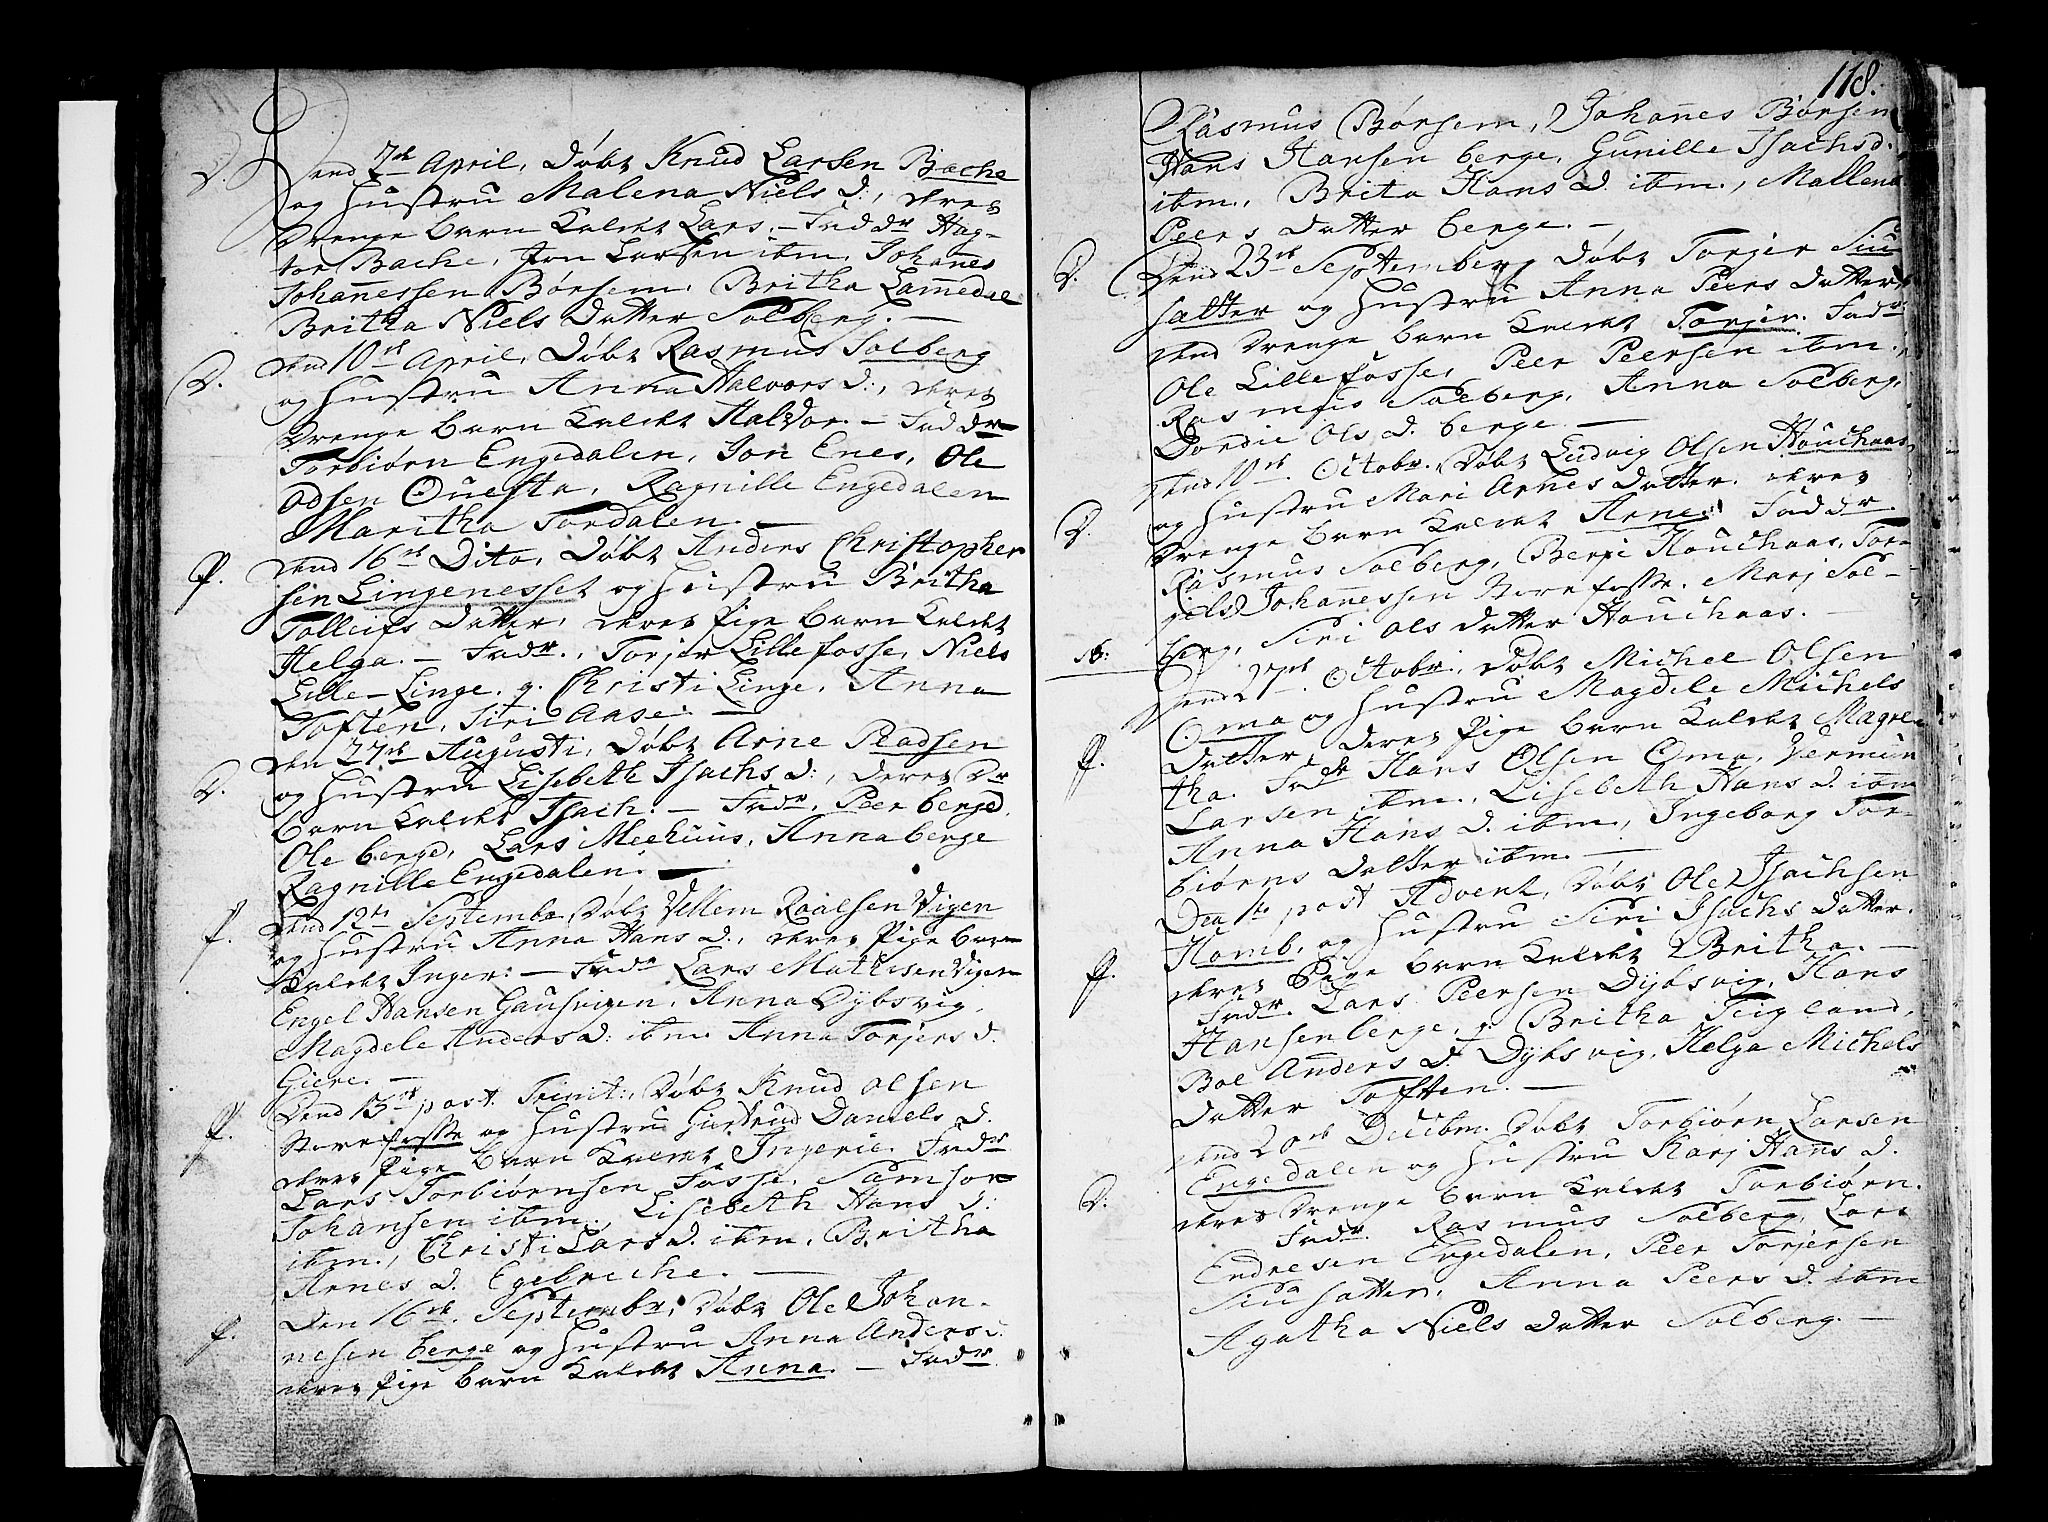 D. Dend 7de April, Døbt Knud Larsen Bache
og Hustru Malena Niels D:, deres
Drenge barn Kaldet Lars. – Fadder Hag-
tor Bache, Jon Larsen ibm. Johannes
Johannessen Børsem, Britha Lammedal
Britha Niels Datter Solberg. –
D. Dend 10de April, Døbt Rasmus Solberg
og Hustru Anna Halvors D:, deres
Drenge barn Kaldet Haldvor. – Faddr
Torbiørn Engedalen, Jon Enes, Ole
Odsen Questa, Ragnille Engedalen
Maritha Tordalen. –
P. Dend 16de Dito, Døbt Anders Christopher
sen Lingenesset og Hustru Britha
Tolleifs Datter, deres Pige barn Kaldet
Helga. – Fadr., Torjer Lillefosse, Niels
Lille-Linge. q. Christi Linge, Anna
Toften, Siri Aase. –
D. Den 27de Augusti, Døbt Arne Peadsen
og Hustru Lisebeth Isachs D:, deres Dr
barn Kaldet Isach. – Fadr, Peer berge
Ole berge, Lars Meehuus, Anna berge
Ragnille Engedalen. –
P. Dend 12te Septembr Døbt Vellem Roalsen Vigen
og Hustru Anna Hans D., deres Pige barn
Kaldet Inger: – Fadr Lars Mathisen Vigen
Engel Hansen Gausvigen, Anna Dybsvig,
Magdele Anders D: ibm. Anna Torjers D.
Giere. –
P. Dend 15de post. Trinit:, Døbt Knud Olsen
Storefosse og Hustru Giertrud Daniels D.
deres Pige barn Kaldet Ingerie. Fadr
Lars Torbiørnsen Fosse, Samson
Johansen ibm, Lisebeth Hans D:
ibm., Christi Lars D. ibm, Britha
Arnes D. Egebreche. –
P. Den 16de Septembr, Døbt Ole Johan-
nesen berge og Hustru Anna Anders D.
deres Pige barn Kaldet Anna. – Fadr
118.
Rasmus Børsem, Johannes Børsem
Hans Hansen berge, Gunille Isachsd.
ibm., Brita Hans D. ibm., Mallena
Peers Datter berge. –
D. Dend 23de September Døbt Torjer Siu
satter og Hustru Anna Peers Datter
dend Drenge barn Kaldet Torjer. Fadr
Ole Lillefosse, Peer Peersen ibm.
Rasmus Solberg, Anna Solberg,
Dordie Ols D. berge –
D. Dend 10de Octobr. Døbt Ludvig Olsen Houchaas
og Hustru Mari Arnes Datter. deres
Drenge barn Kaldet Arne. Faddr.
Rasmus Solberg, Berje Houchaas, Tor-
gils Johannessen Storefosse. Marj Sol-
berg, Siri Ols Datter Houchaas. –
P. Dend 27de Octobr, Døbt Michel Olsen
Oma og Hustru Magdele Michels
Datter, deres Pige barn Kaldet Magre-
tha. Fadr Hans Olsen Oma, Vermun
Larsen ibm., Lisebeth Hans D. ibm
Anna Hans D. ibm., Ingeborg Tor-
biørns Datter ibm. –
P. Den 1te post Advent, Døbt Ole Isachsen
Homb, og Hustru Siri Isachs Datter.
deres Pige barn Kaldet Britha. –
Fadr. Lars Peersen Dybsvig, Hans
Hansen berge, q. Britha Teigland,
Boe Anders D. Dybsvig, Helga Michels
Datter Toften. –
D: Dend 20de Decibm. Døbt Torbiørn Larsen
Engedalen og Hustru Karj Hans D.
deres Drenge barn Kaldet Torbiørn.
Fadr. Rasmus Solberg, Lars
Endresen Engedalen, Peer Torjersen
Siusatter, Anna Peers D. ibm
Agatha Niels Datter Solberg. –